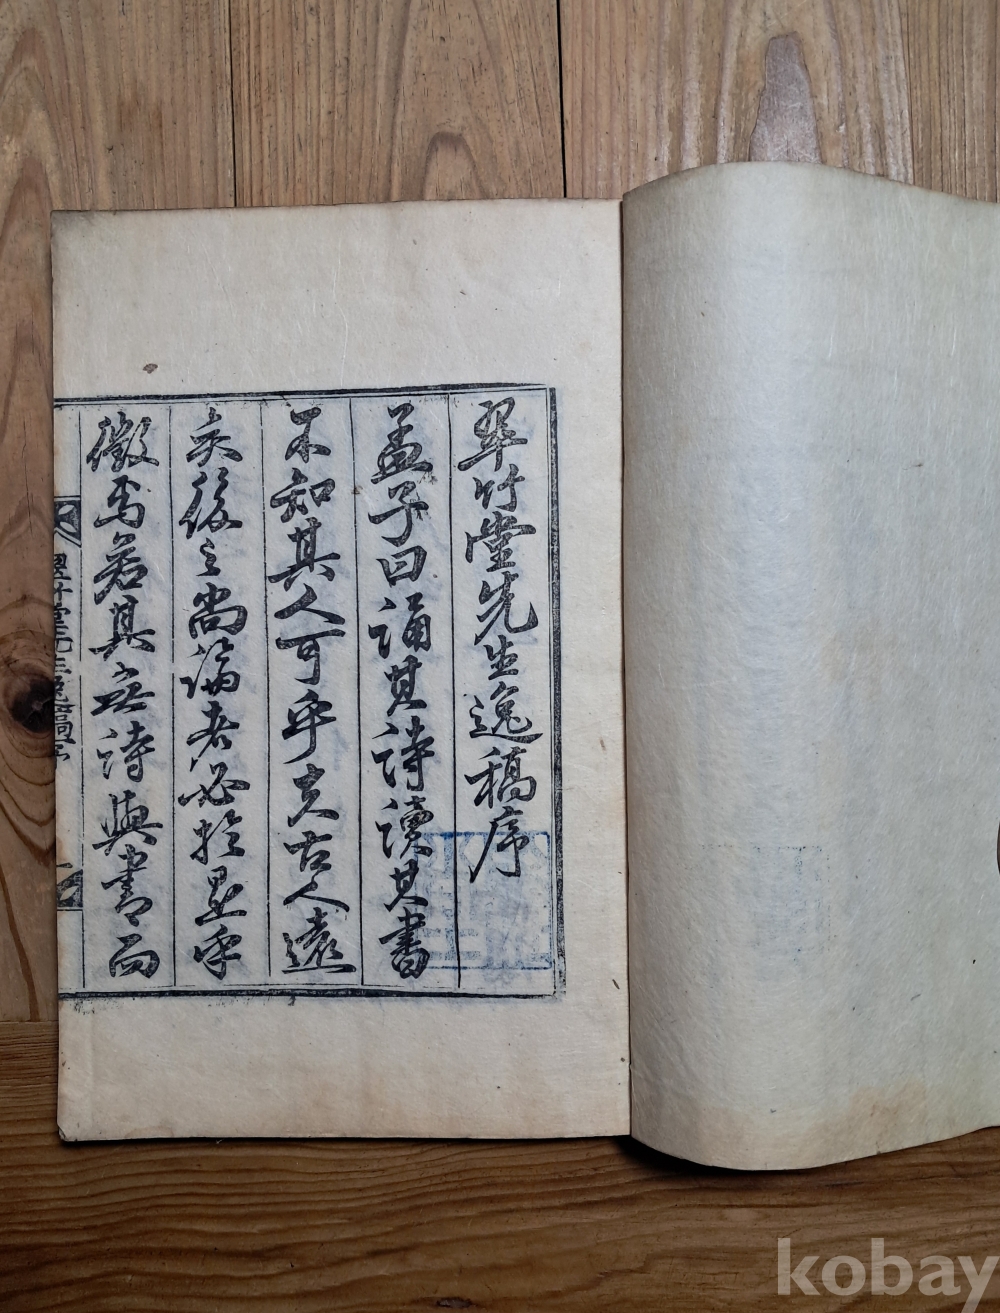 翠竹堂先生逸稿序
孟子曰誦其詩讀其書
不知其人可乎夫古人遠
矣後之尚論者必於是乎
徵焉若其無詩與書而
翠竹堂先生逸稿序
kobay